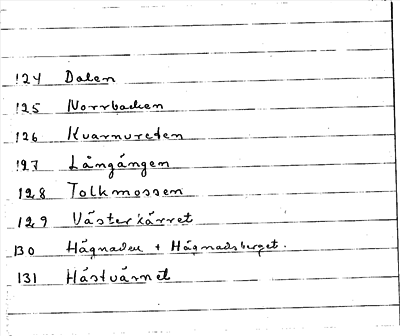 124 Dalen
125 Norrbacken
126 Kvarnvreten
127 Långängen
128 Tolkmossen
129 Västerkärret
130 Hägnaden + Hägnadsberget.
131 Hästvärnet